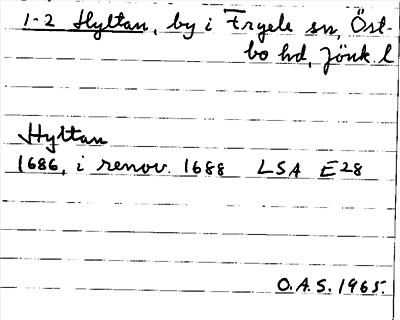 1-2 Hyltan, by i Fryele sn, Öst-
bo hd, Jönk. l
Hyltan
1686, i renov. 1688 LSA E28
O.A.S. 1965.